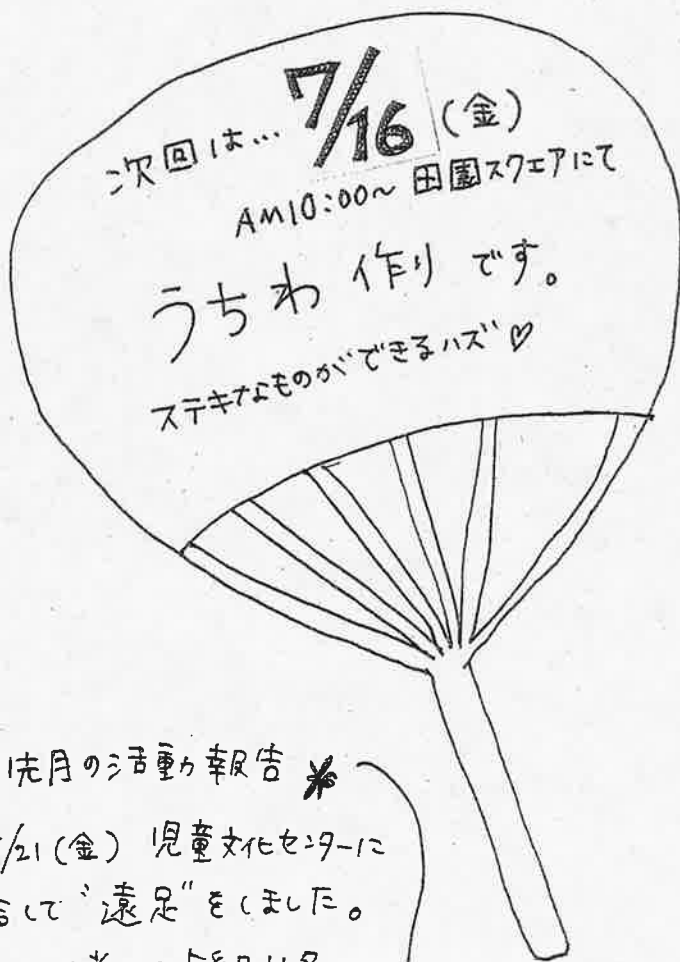 次回は… 7/16 (金)
AM10:00~ 田園スクエアにて
うちわ 作り です。
ステキなものができるハズ♡
先月の活動報告
/21(金) 児童文化センターに
して"遠足"をしました。